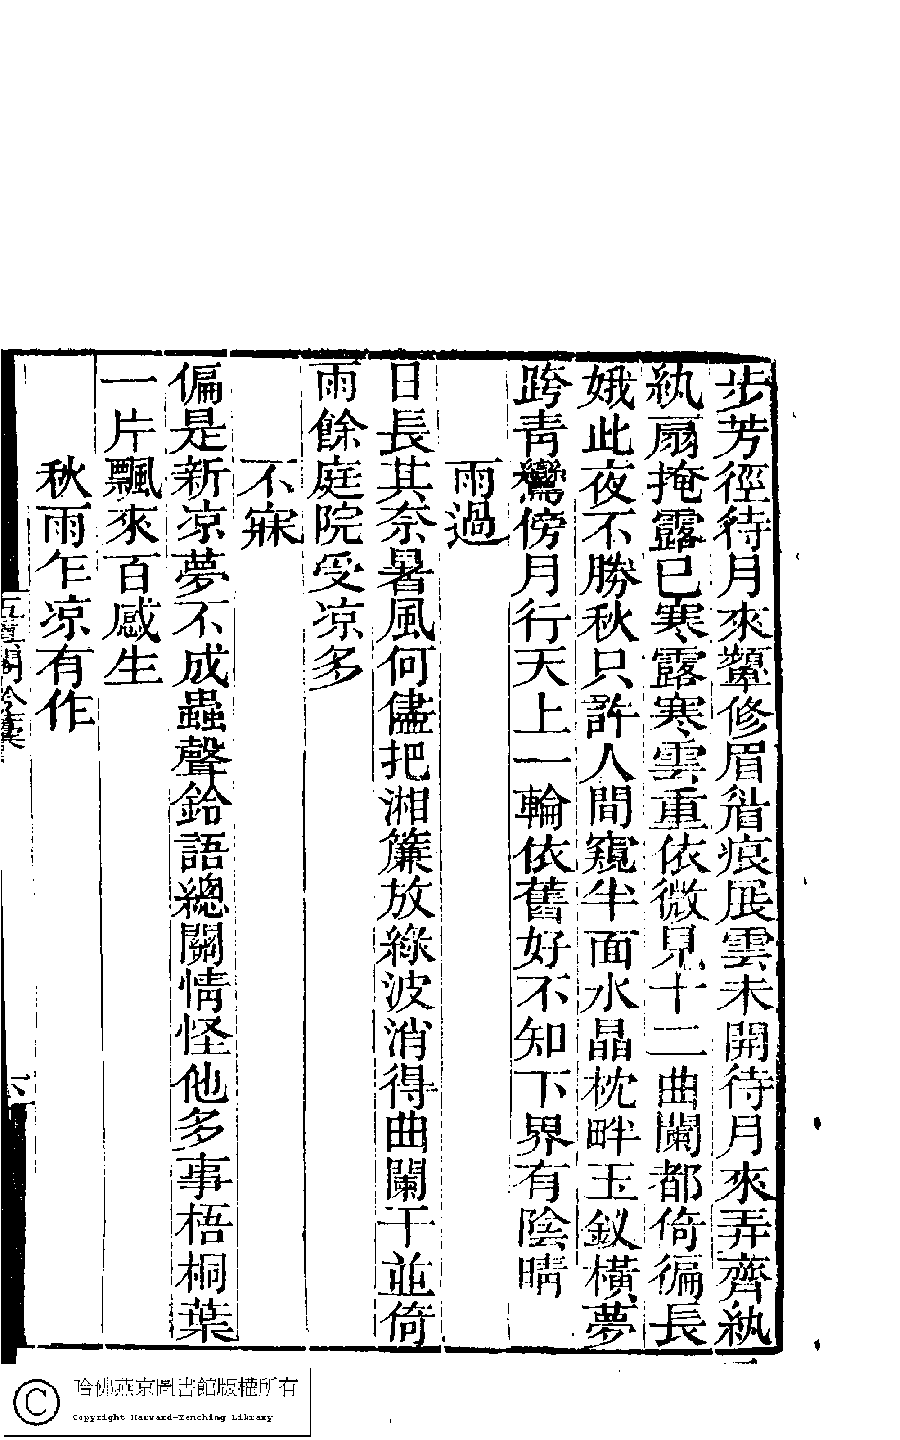 步芳徑待月來顰修眉眉痕展雲未開待月來弄齊紈
紈扇掩露已寒露寒雲重依微見十二曲闌都倚徧長
娥此夜不勝秋只許人間窺半面水晶枕畔玉釵橫夢
跨青鸞傍月行天上一輪依舊好不知下界有陰晴
雨過
日長其奈暑風何儘把湘簾放綠波消得曲闌干並倚
雨餘庭院受凉多
不寐
偏是新凉夢不成蟲聲鈴語總關情怪他多事梧桐葉
一片飄來百感生
秋雨乍凉有作
哈佛燕京圖書館版權所有
Copyright Harvard-Yenching Library